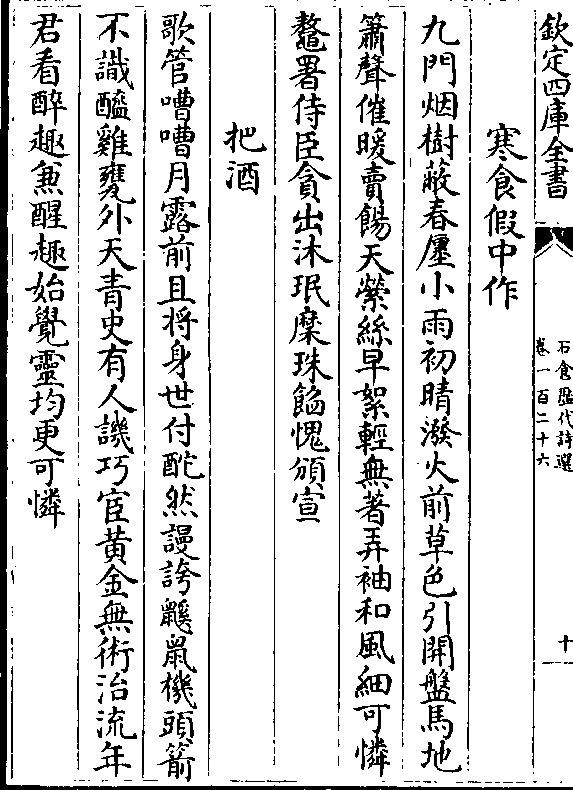 欽定四庫全書
石倉歷代詩選
卷一百二十六
十
寒食假中作
九門烟樹蔽春廛小雨初晴潑火前草色引開盤馬地
簫聲催暖賣餳天縈絲早絮輕無著弄袖和風細可憐
鼇署侍臣貪出沐珉糜珠餡愧頒宣
把酒
歌管嘈嘈月露前且将身世付酡然謾誇鼷鼠機頭箭
不識醯雞甕外天青史有人譏巧宦黄金無術治流年
君看醉趣兼醒趣始覺靈均更可憐